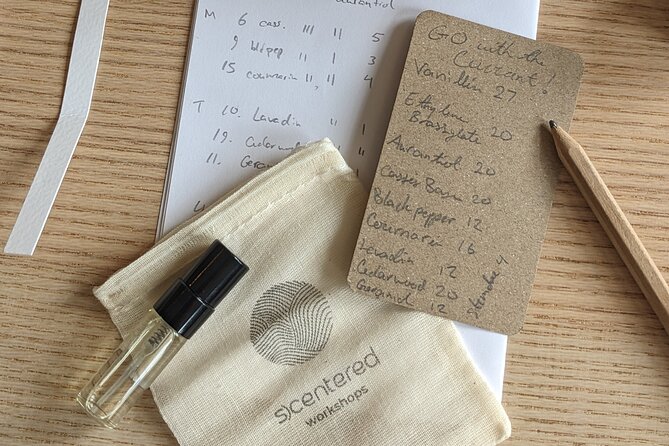 Aurantiol
M 6 cass. III II 5
9 blkpep II 1 3
15 coumarin II, II 4
T 10. Lavadin
19. Cedarw
11. Geran
GO with the
Currant!
Vanillin 27
Ethylene
Brassylate 20
Aurantiol 20
Cassis Base 20
Black pepper 12
Coumarin 16
Lavadin 12
Cedarwood 20
Geraniol 12
s)centered
workshops